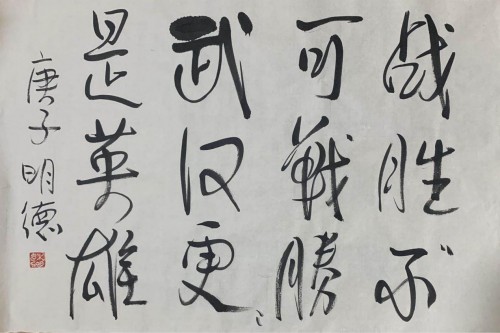 战胜不
可戰勝
武汉更
是英雄
庚子 明德